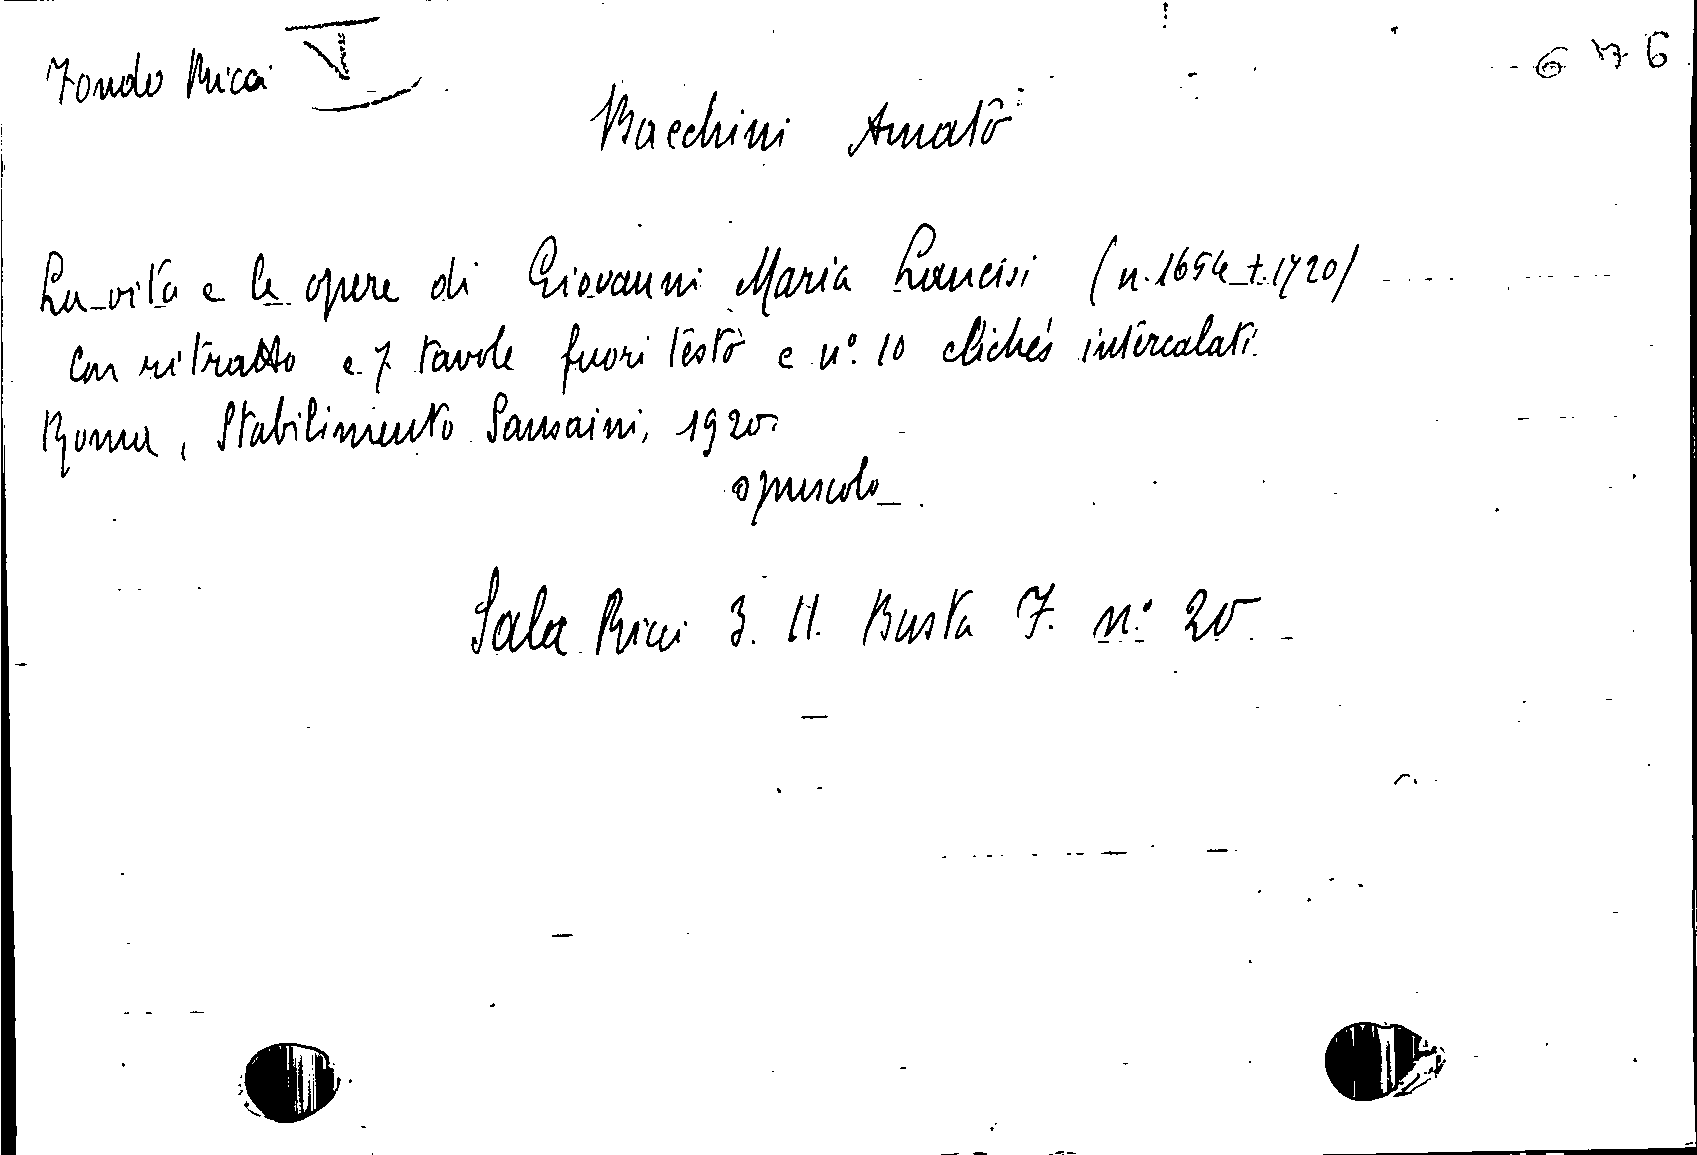 Fondo Ricci V
676
Bacchini Amato
La vita e le opere di Giovanni Maria Lancisi (n. 1654 †. 1720)
Con ritratto e 7 tavole fuori testo e n° 10 clichés intercalati.
Roma, Stabilimento Sansaini, 1920.
opuscolo
Sala Ricci 3. 11. Busta 7. n.° 20